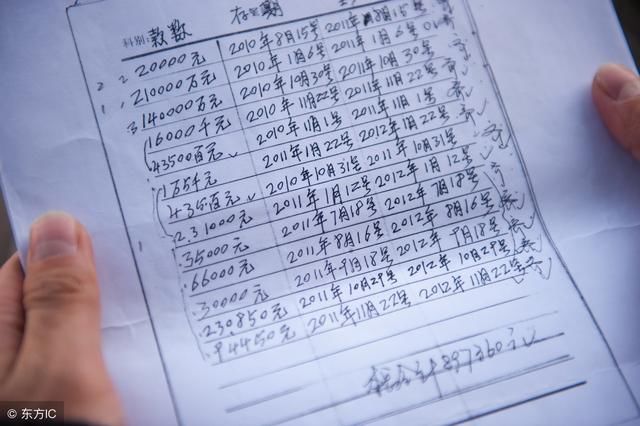 科别: 款数 存 期
20000元 2010年8月15号 2011年8月15号
210000万元 2010年1月6号 2011年1月6号
3 140000万元 2010年10月30号 2011年10月30号
16000千元 2010年11月22号 2011年11月22号
43500百元 2010年11月1号 2011年11月1号
1万5千元 2011年1月22号 2012年1月22号
435百元 2010年10月31号 2011年10月31号
2.31000元 2011年1月12号 2012年1月12号
35000元 2011年7月18号 2012年7月18号
66000元 2011年8月16号 2012年8月16号
30000元 2011年9月18号 2012年9月18号
230.850元 2011年10月29号 2012年10月29号
94450元 2011年11月22号 2012年11月22号
897360元
© 东方IC